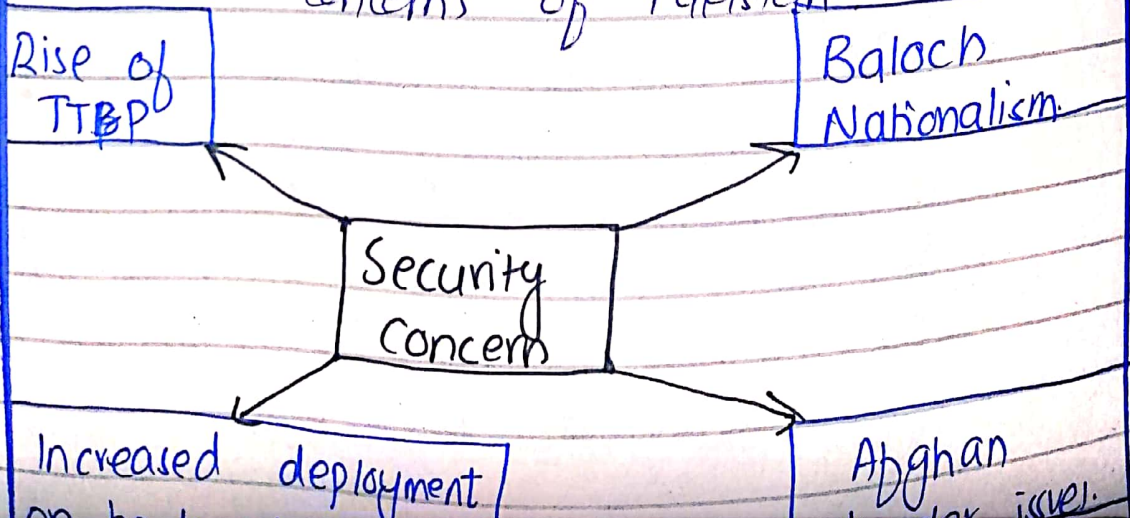 of
Rise of
TTP
Baloch
Nationalism.
Security
Concern
Increased deployment
Afghan
issues.